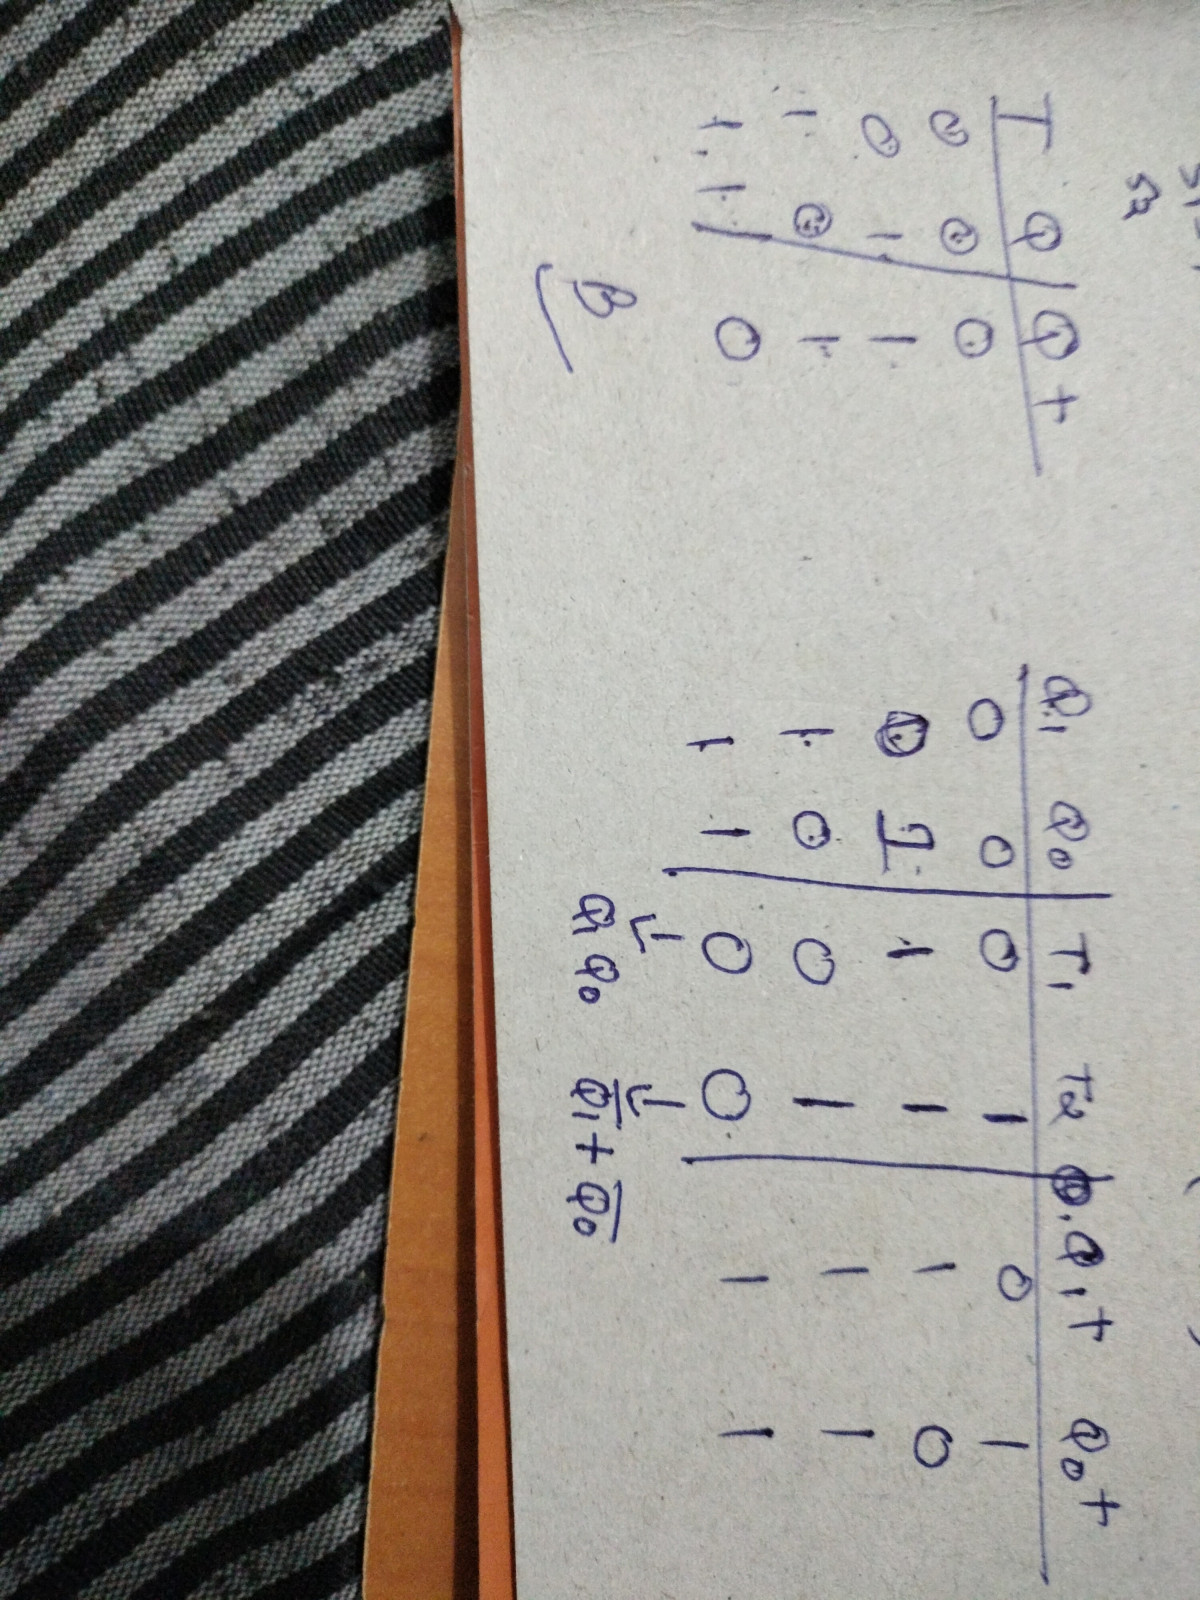 S1
S2
T Q Q+
0 0 0
0 1 1
1 0 1
1 1 0
B
Q1 Q0 T1 T2 Q1+ Q0+
0 0 0 1 0 1
0 1 1 1 1 0
1 0 0 1 1 1
1 1 0 0 1 1
↓ ↓
Q1 Q0 Q̅1 + Q̅0